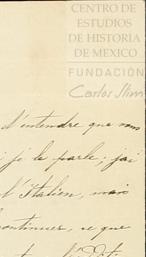 CENTRO DE
ESTUDIOS
DE HISTORIA
DE MEXICO
FUNDACIÓN
Carlos Slim
d'entendre que vous
si je le parle; j'ai
l'Italien, mais
continuer, ce que